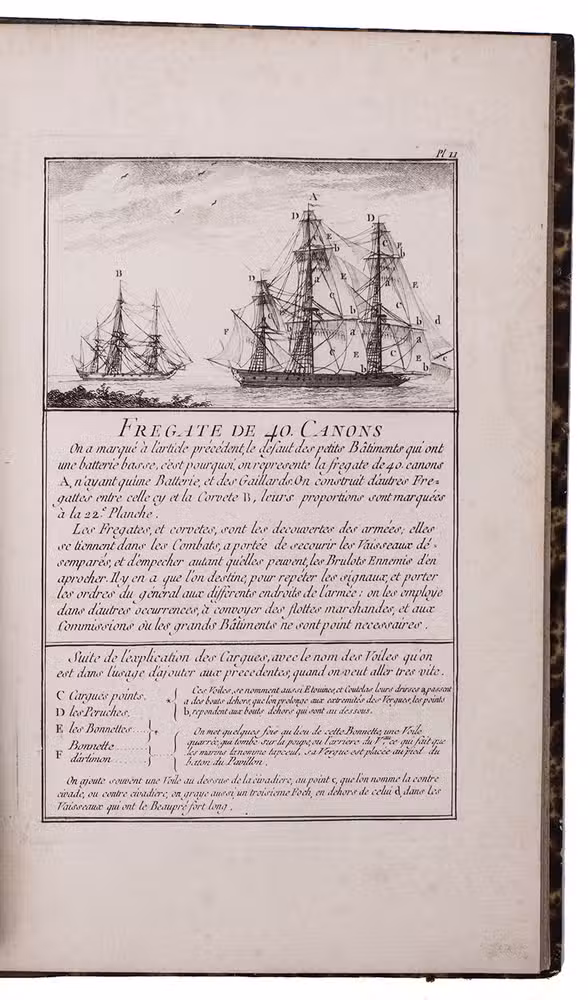 Pl 11
A
D
D
E
E
b
b
B
a
a
E
E
D
c
c
b
b
F
a
a
d
E
b
c
c
c
FREGATE DE 40. CANONS
On a marqué à l'article précédent, le défaut des petits Bâtiments qui ont
une batterie basse, c'est pourquoi, on represente la fregate de 40. canons
A, n'ayant qu'une Batterie, et des Gaillards. On construit d'autres Fre-
gattes entre celle cy et la Corvete B, leurs proportions sont marquées
à la 22.e Planche.
Les Fregates, et corvetes, sont les decouvertes des armées; elles
se tiennent dans les Combats, a portée de secourir les Vaisseaux dé-
semparés, et d'empecher autant qu'elles peuvent, les Brulots Ennemis d'en
aprocher. Il y en a que l'on destine, pour repéter les signaux, et porter
les ordres du général aux différents endroits de l'armée: on les employe
dans d'autres occurrences, à convoyer des flottes marchandes, et aux
Commissions ou les grands Bâtiments ne sont point necessaires.
Suite de l'explication des Cargues, avec le nom des Voiles qu'on
est dans l'usage d'ajouter aux precedentes, quand on veut aller tres vite.
C Cargues points.
D les Peruches.
E les Bonnettes
F Bonnette d'artimon
Ces Voiles, se nomment aussi Etouines, et Coutelas leurs drisses a, passent
a des bouts dehors, que l'on prolonge aux extremités des Vergues, les points
b, repondent aux bouts dehors qui sont au dessous.
On met quelques fois au lieu de cette Bonnette, une Voile
quarrée, qui tombe sur la poupe, ou l'arriere du V.eau ce qui fait que
les marins la nomme tapecul, sa Vergue est placée au pied du
baton du Pavillon.
On ajoute souvent une Voile au dessous de la civadiere, au point c, que l'on nomme la contre
civade, ou contre civadiere, on graye aussi un troisieme Foch, en dehors de celui d, dans les
Vaisseaux qui ont le Beaupré fort long.